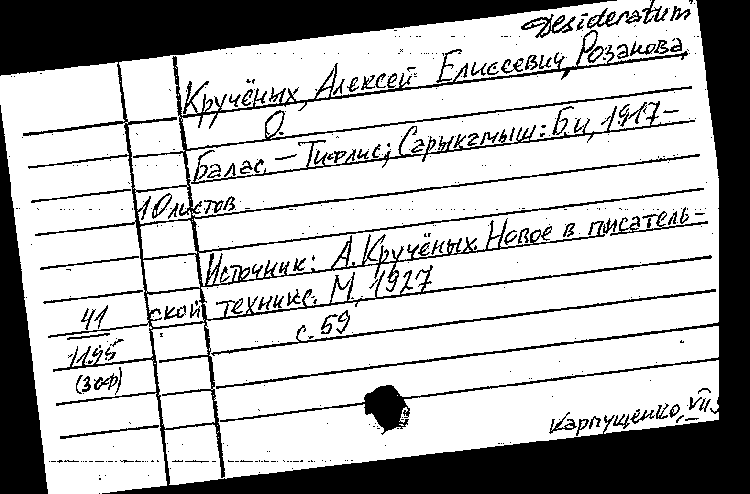 Desideratum
Кручёных, Алексей Елиссевич, Розанова,
О.
Балас. – Тифлис; Сарыкамыш: Б.и, 1917–
10 листов
Источник: А. Кручёных. Новое в писатель-
ской технике. М, 1927
с. 59
41
1195
(3оф)
Карпущенко, VII,